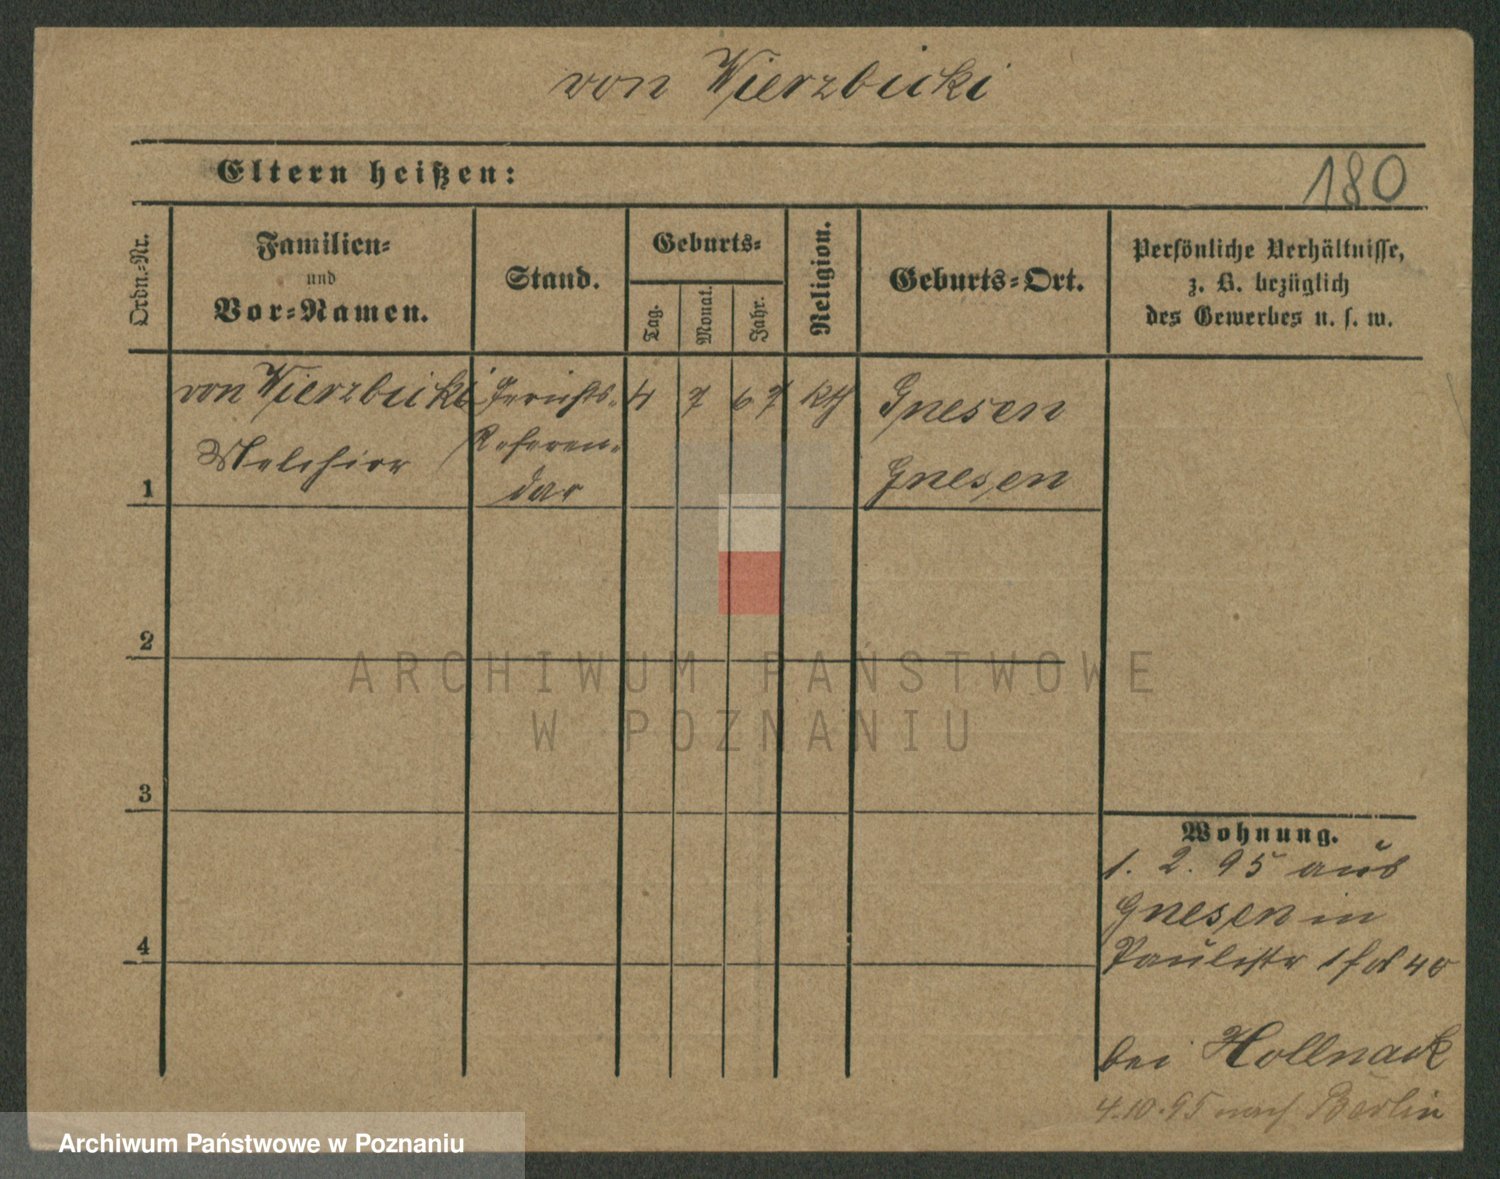 von Wierzbicki
Eltern heißen:
180
Ordn.=Nr.
Familien=
und
Vor=Namen.
Stand.
Geburts=
Tag.
Monat.
Jahr.
Religion.
Geburts=Ort.
Persönliche Verhältnisse,
z. B. bezüglich
des Gewerbes u. s. w.
von Wierzbicki Gerichts= 4 7 67 kth Gnesen
Melchior Referen= Gnesen
1 dar
2
ARCHIWUM PAŃSTWOWE
W POZNANIU
3
Wohnung.
1. 2. 95 aus
Gnesen in
4
Paulistr 1
bei Hollnack
4.10.95 nach Berlin
Archiwum Państwowe w Poznaniu